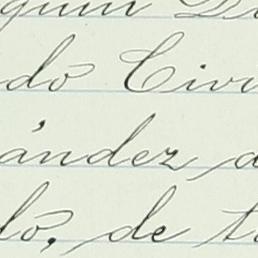 quin D
do Civi
ández a
lo, de t